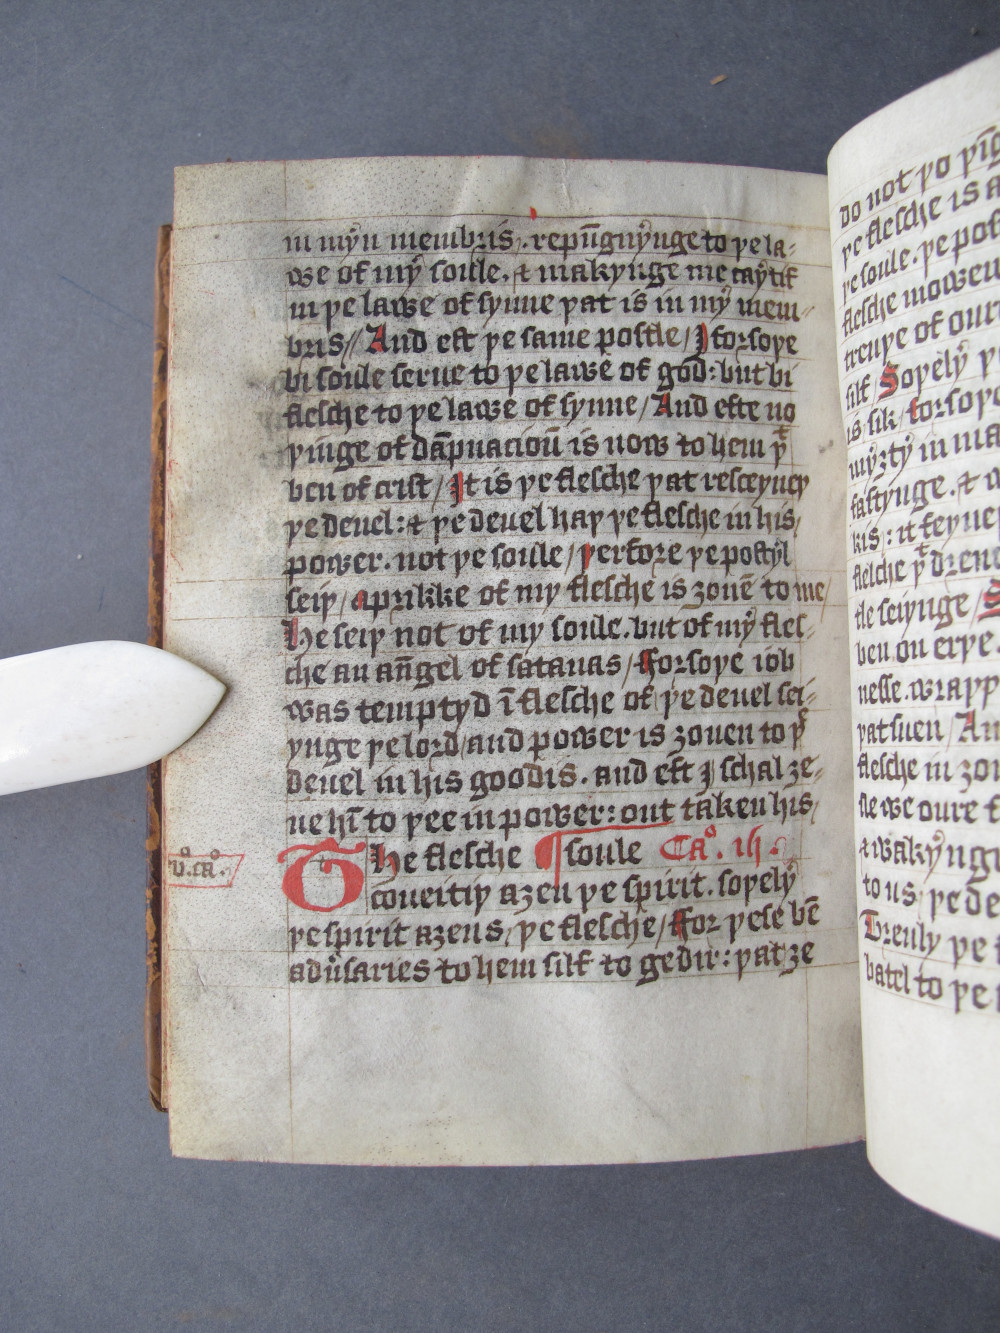 in myn membris. repūgnynge to þe la-
we of my soule. & makynge me caytif
in þe lawe of synne þat is in my mem-
bris // And eft þe same postle / I forsoþe
bi soule serue to þe lawe of god: but bi
flesche to þe lawe of synne / And efte no
þinge of dāpnacioū is now to hem þt
ben of crist / It is þe flesche þat resceyueþ
þe deuel: & þe deuel haþ þe flesche in his
power. not þe soule / þerfore þe postyl
seiþ / a prikke of my flesche is ȝouē to me /
He seiþ not of my soule. but of my fles-
che an āngel of satanas / Forsoþe iob
was temptyd ī flesche of þe deuel sei-
ynge þe lord / and power is ȝouen to þe
deuel in his goodis. and eft I schal ȝe-
ue hī to þee in power: out taken his /
The flesche ¶ soule Ca͞o. ii
v͞o. ca͞o.
coueitiþ aȝen þe spirit. soþely
þe spirit aȝens þe flesche / Ffor þese bē
aduˢaries to hem silf to gedir: þat ȝe
do not þo þīg
þe flesche is a
þe soule. þe pos
flesche mowen
treuþe of our
silf Soþely þ
is silk / forsoþ
myȝty in ma
fastynge. & 
kis: it feyne
flesche þt dren
fle seiynge /
ben on erþe.
nesse. wrapp
þat suen / An
flesche in ȝou
fle we oure f
& wakyng
to us þe de
Treuly þe
batel to þe